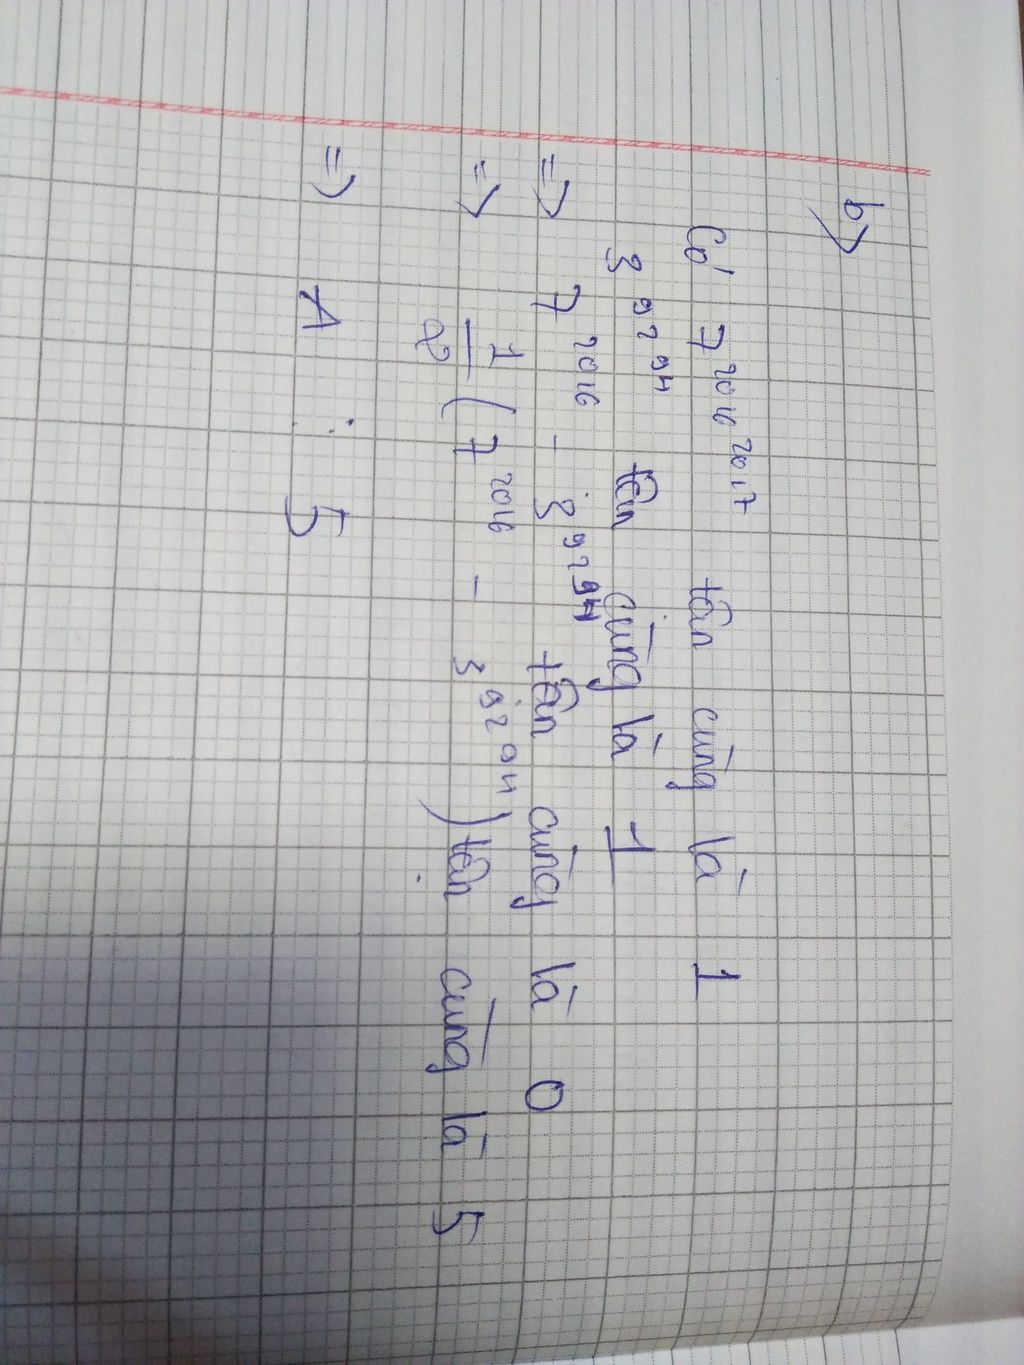 b)
Có 7^2016^2017 tận cùng là 1
3^92^94 tận cùng là 1
=> 7^2016 - 3^92^94 tận cùng là 0
=> 1/2 (7^2016 - 3^92^94) tận cùng là 5
=> A ⋮ 5